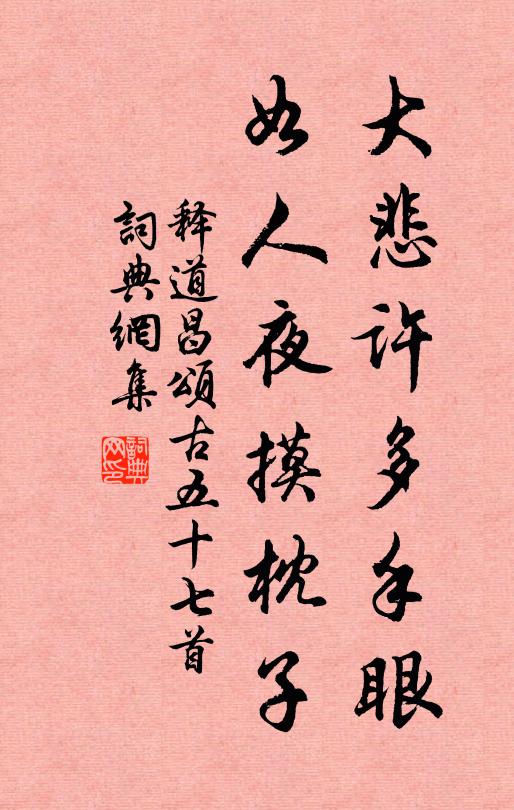 大悲許多手眼
如人夜摸枕子
释道昌頌古五十七首
詞典網集
詞典網印